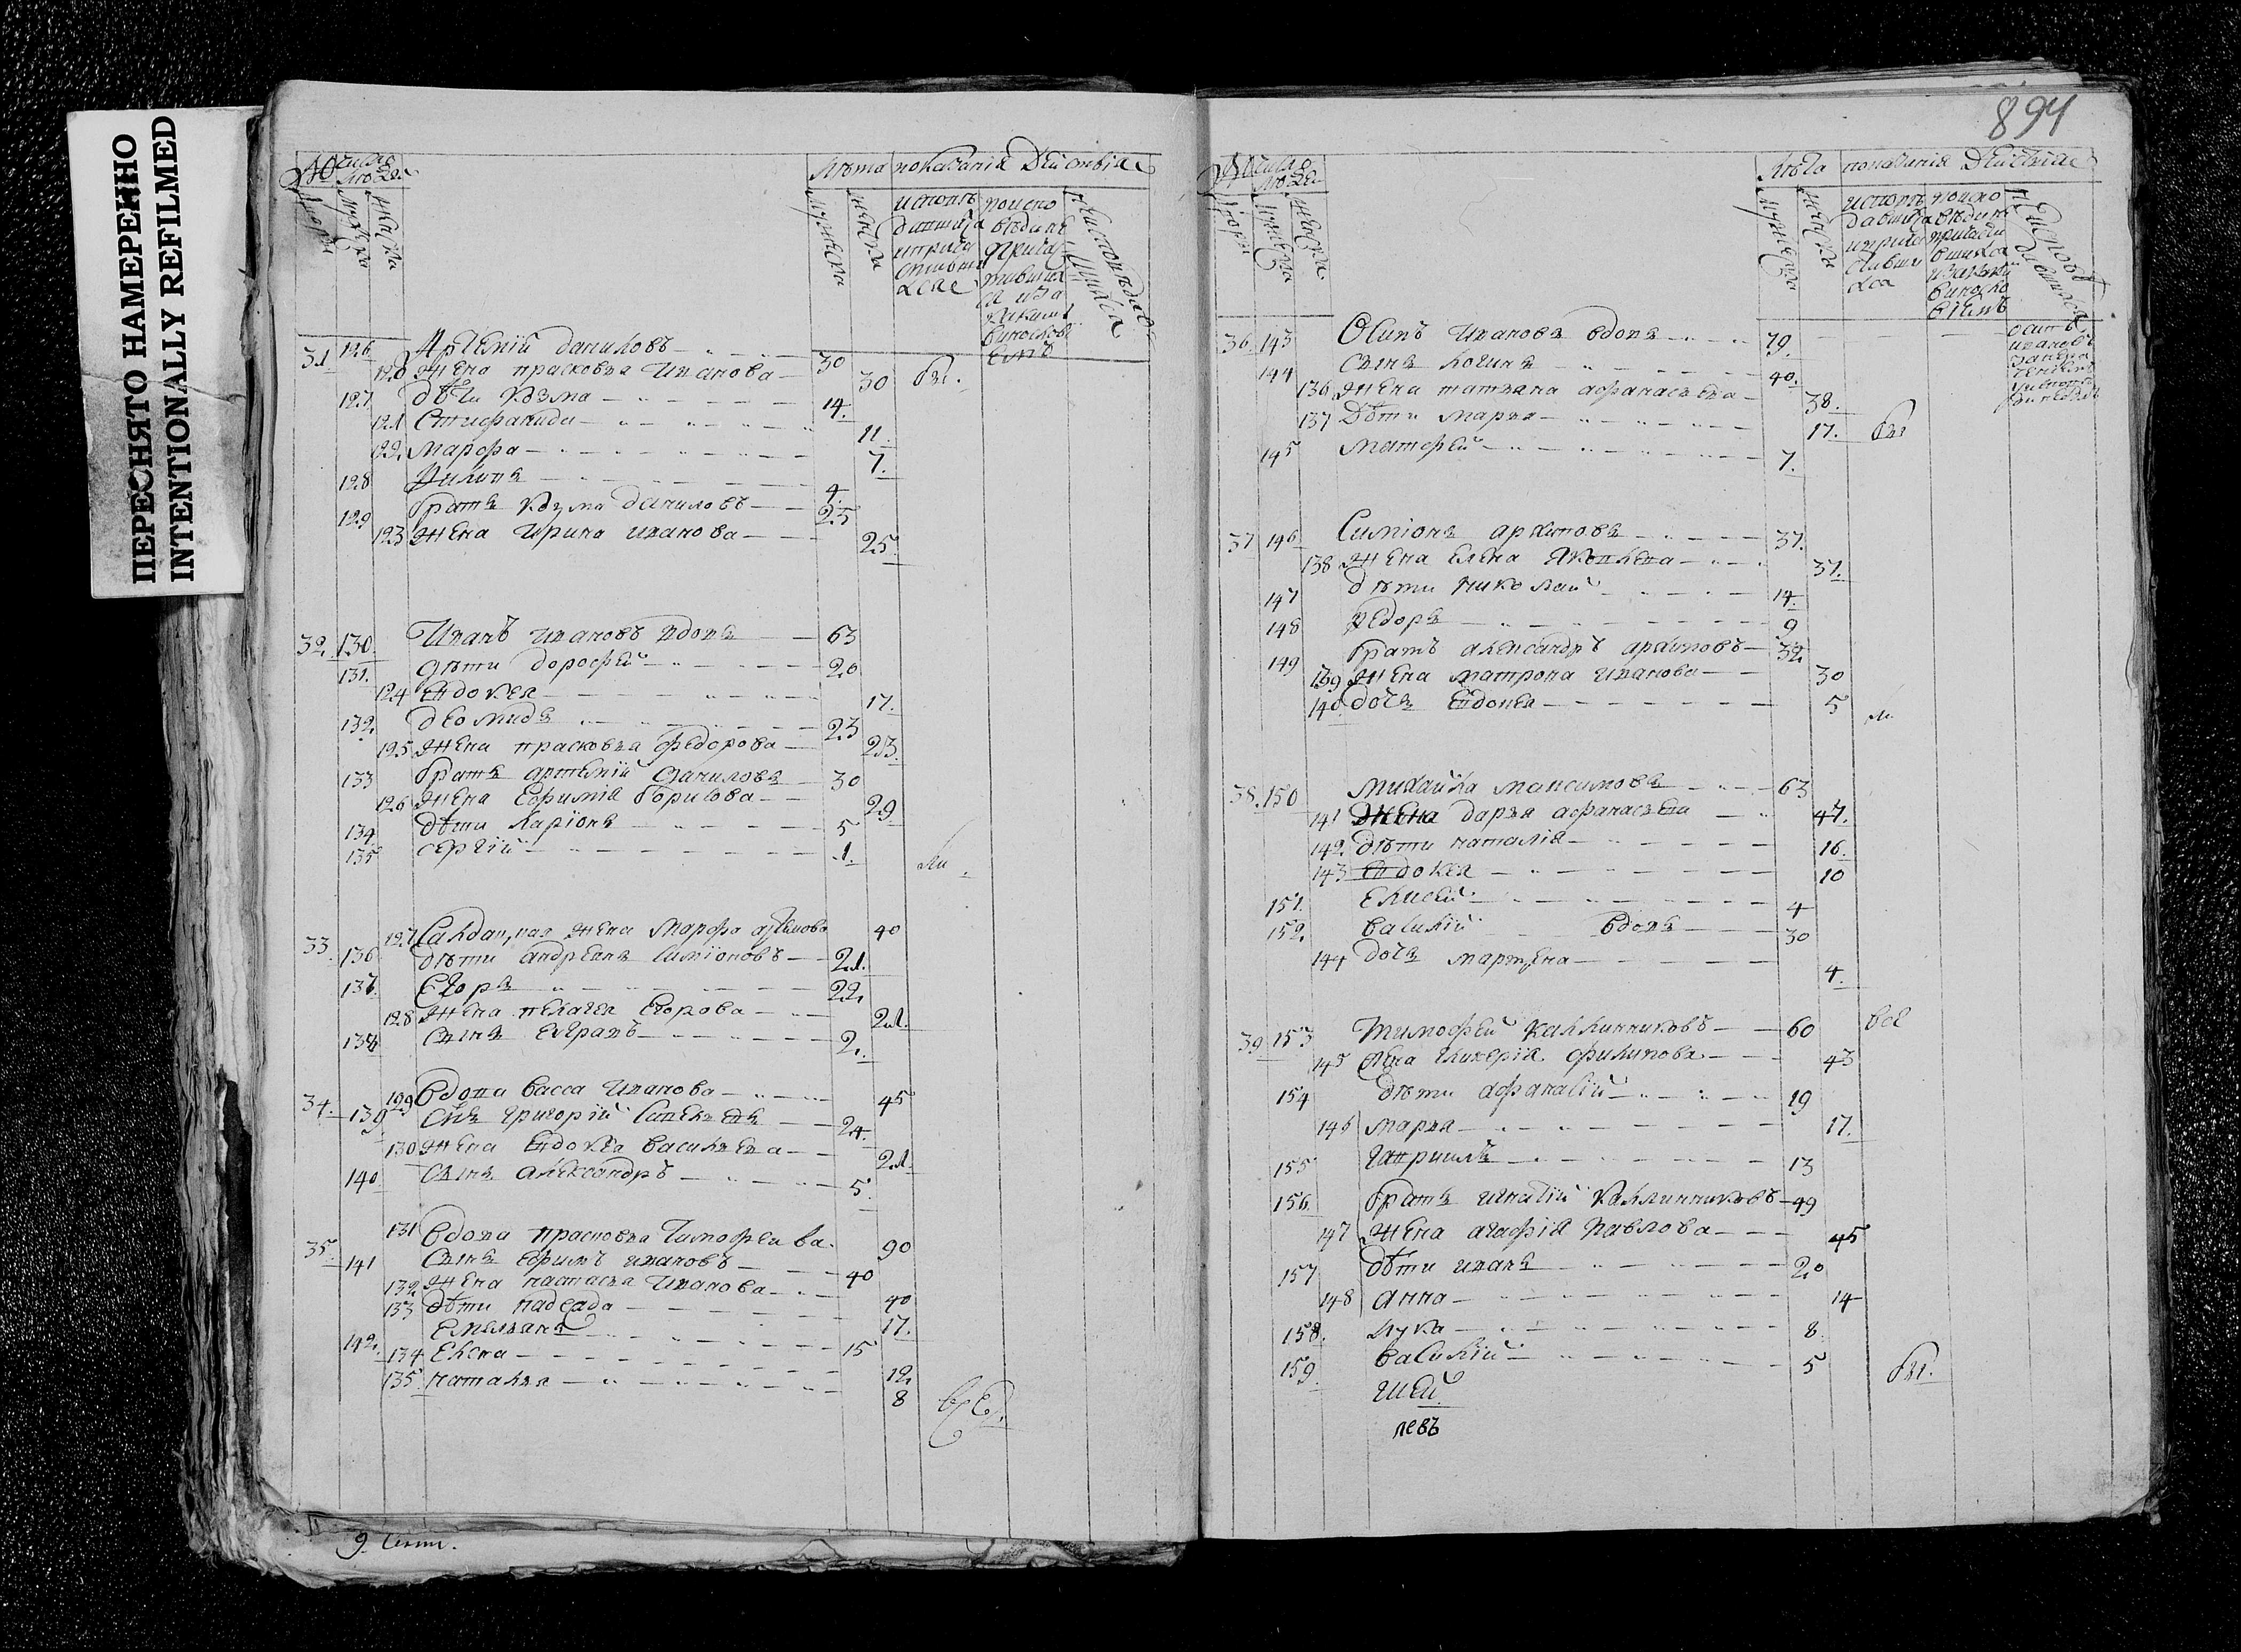 ПЕРЕСНЯТО НАМЕРЕННО
INTENTIONALLY REFILMED
число
люде
двори
мужеска
женска
лѣта показаніе действія
мужеска
женска
31 126 Артемій даниловъ 30
120 жена прасковья Иванова 30 вы.
127 дѣти Козма 14.
121 Стифанида 11.
122. марфа 7.
128 4
129 братъ Козма даниловъ 25
123 жена Ирина иванова 25
32. 130. Иванъ ивановъ вдовъ 63
131. дѣти дорофей 20
124 Евдокея 17.
132. деомидъ 23
125 жена прасковья федорова 23.
133 братъ артемій даниловъ 30
126 жена Ефимія борисова 29
134 дѣти ларіонъ 5
135 сергій 1. ли
33. 127 Салдацкая жена Марфа 40
136 дѣти андреянъ симіоновъ 21.
137 Егоръ 22.
128 жена пелагея Егорова 21.
138 сынъ Евграпъ 2.
34. 129 вдова васса Иванова 45
139 снъ григорій савельевъ 24.
130 жена Евдокѣя васильева 21.
140 сынъ александръ 5.
35. 131 вдова прасковья Тимофеива. 90
141 сынъ ефимъ ивановъ 40
132 жена настасья Иванова 40
133 дѣти надежда 17.
142. Емельянъ 15
134 Елена 12
135 наталья 8
9. Сент.
894
число
люде
двори
мужеска
женска
лѣта показанія действія
мужеска
женска
36. 143 Осипъ ивановъ вдовъ 79.
осипъ
ивановъ
144 сынъ логинъ 40.
136 жена татьяна афанасьева 38.
137 дѣти марья 17. вы
145 матфей 7.
37 146 Симіонъ архиповъ 37.
138 жена Елена Яковлева 37.
147 дѣти николай 14.
148 федоръ 9
149 братъ александръ архиповъ 32
139 жена матрона иванова 30
140 дочь Евдокея 5 ли
38. 150 михайла максимовъ 63
141 жена дарья афанасьева 47.
142. дѣти наталія 16.
143 Евдокея 10
151. Елисей 4
152. василій вдовъ 30
144 дочь мартџена 4.
39. 153 тимофей калинниковъ 60 все
145 жена гликерія филипова 43
154 дѣти афанасій 19
146 марья 17.
155 гавриилъ 13
156 братъ игнатій калинниковъ 49
147 жена агафія павлова 45
157 дѣти иванъ 20
148 анна 14
158. лука 8.
159. василій 5 вы.
шей
левъ